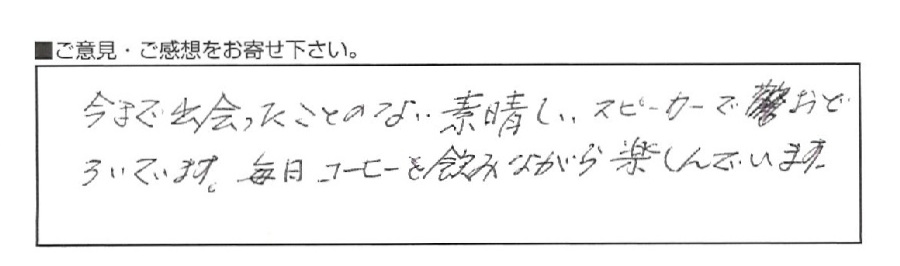 ■ご意見・ご感想をお寄せ下さい。
今まで出会ったことのない素晴しいスピーカーでおど
ろいています。毎日コーヒーを飲みながら楽しんでいます。